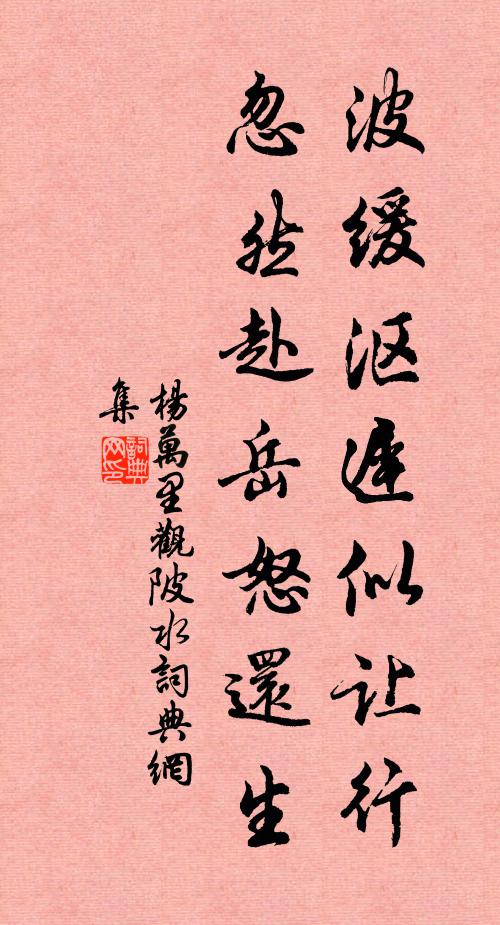 波缓沤遲似让行
忽然赴岳怒還生
楊萬里觀陂水詞典網
集
詞典
网印